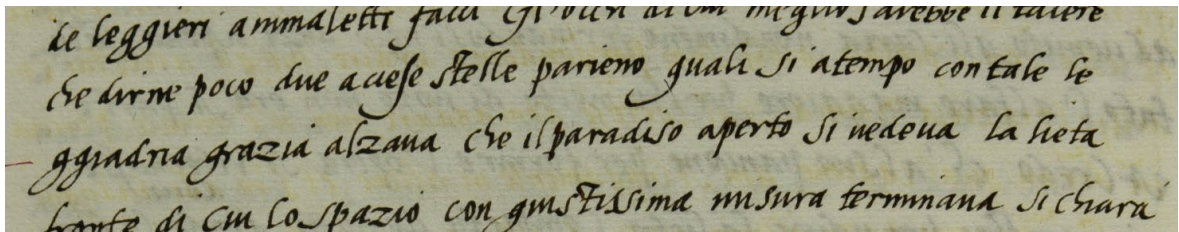 de leggieri ammaletti facci Gl'occhi di cui meglio sarebbe il tacere
che dirne poco due accese stelle parieno quali si a tempo con tale le
ggiadria grazia alzava che il paradiso aperto si vedeva la lieta
fronte di cui lo spazio con giustissima misura terminava si chiara